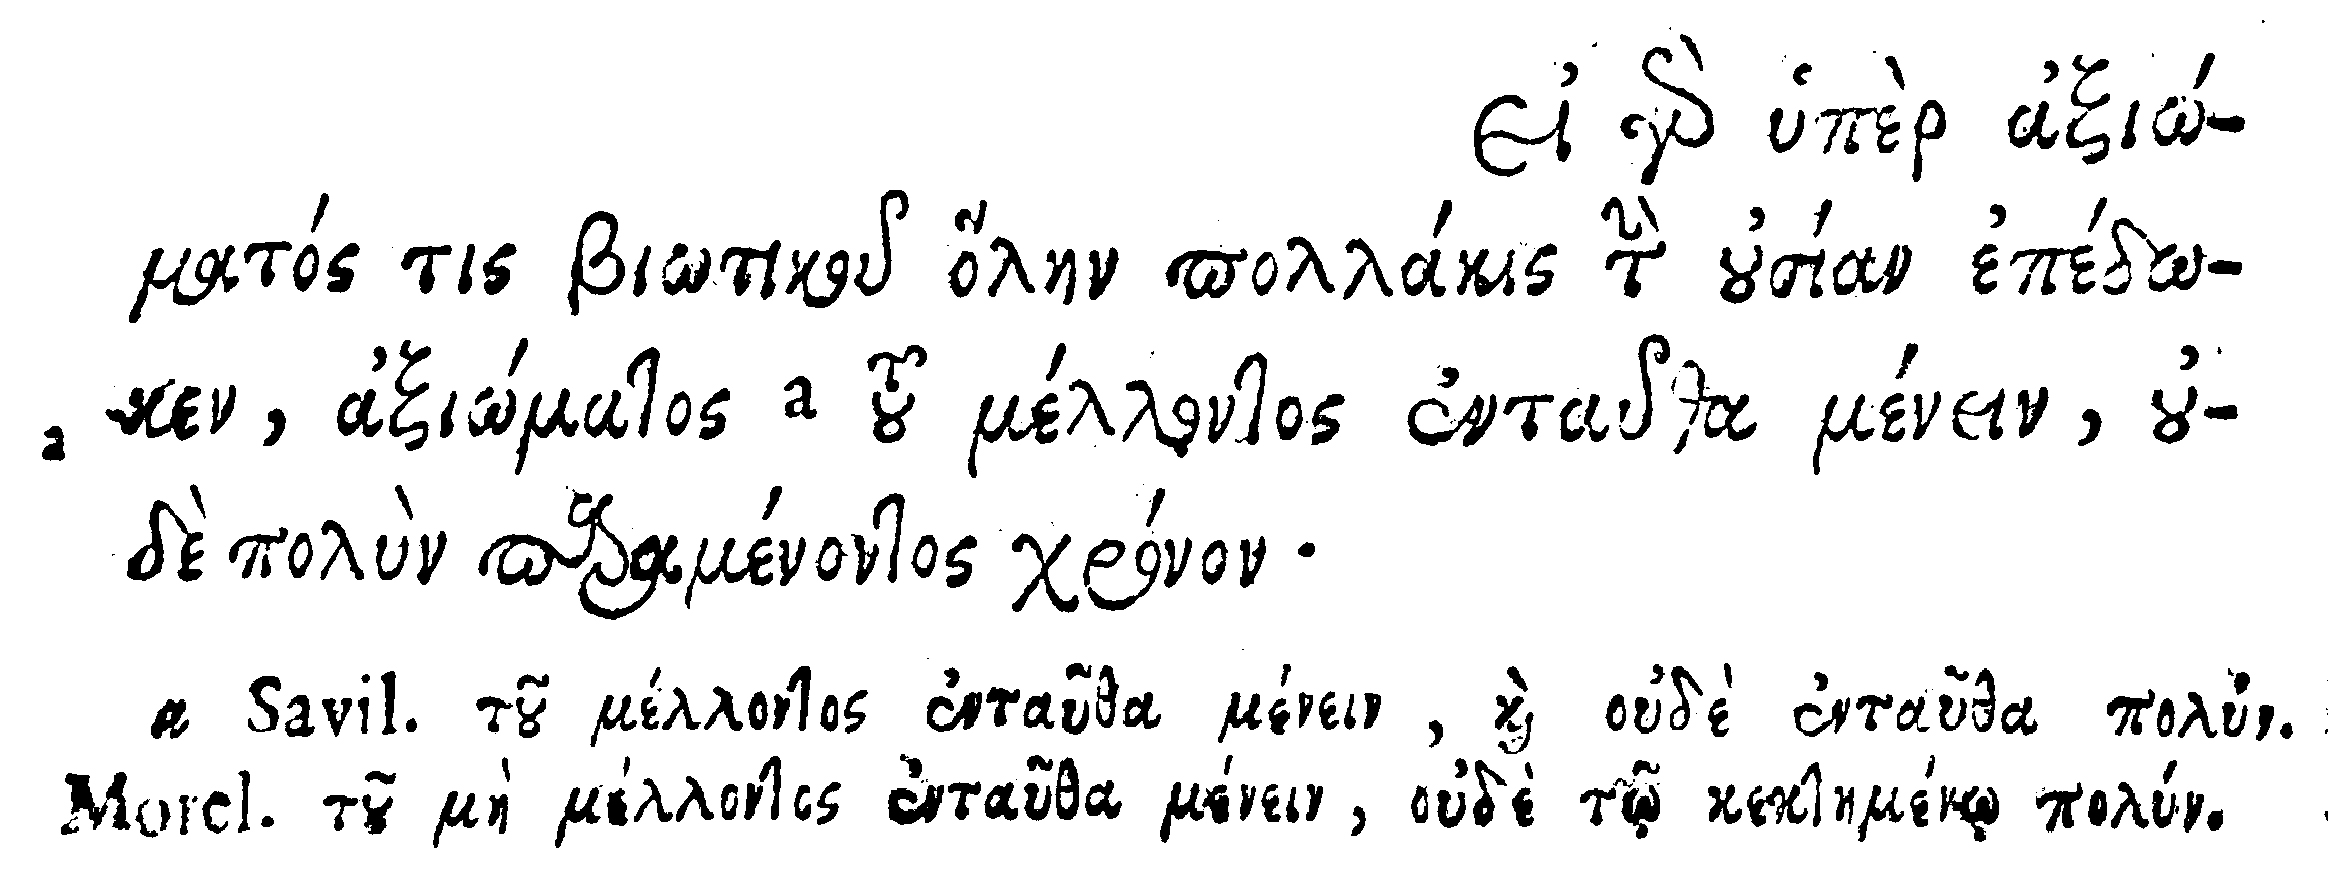 Εἰ γὰρ ὑπὲρ ἀξιώ-
ματός τις βιωτικοῦ ὅλην πολλάκις τὴν οὐσίαν ἐπέδω-
a κεν, ἀξιώματος a τοῦ μέλλοντος ἐνταῦθα μένειν, οὐ-
δὲ πολὺν παραμένοντος χρόνον·
a Savil. τοῦ μέλλοντος ἐνταῦθα μένειν, καὶ οὐδὲ ἐνταῦθα πολύν.
Morel. τοῦ μὴ μέλλοντος ἐνταῦθα μένειν, οὐδὲ τῷ κεκτημένῳ πολύν.